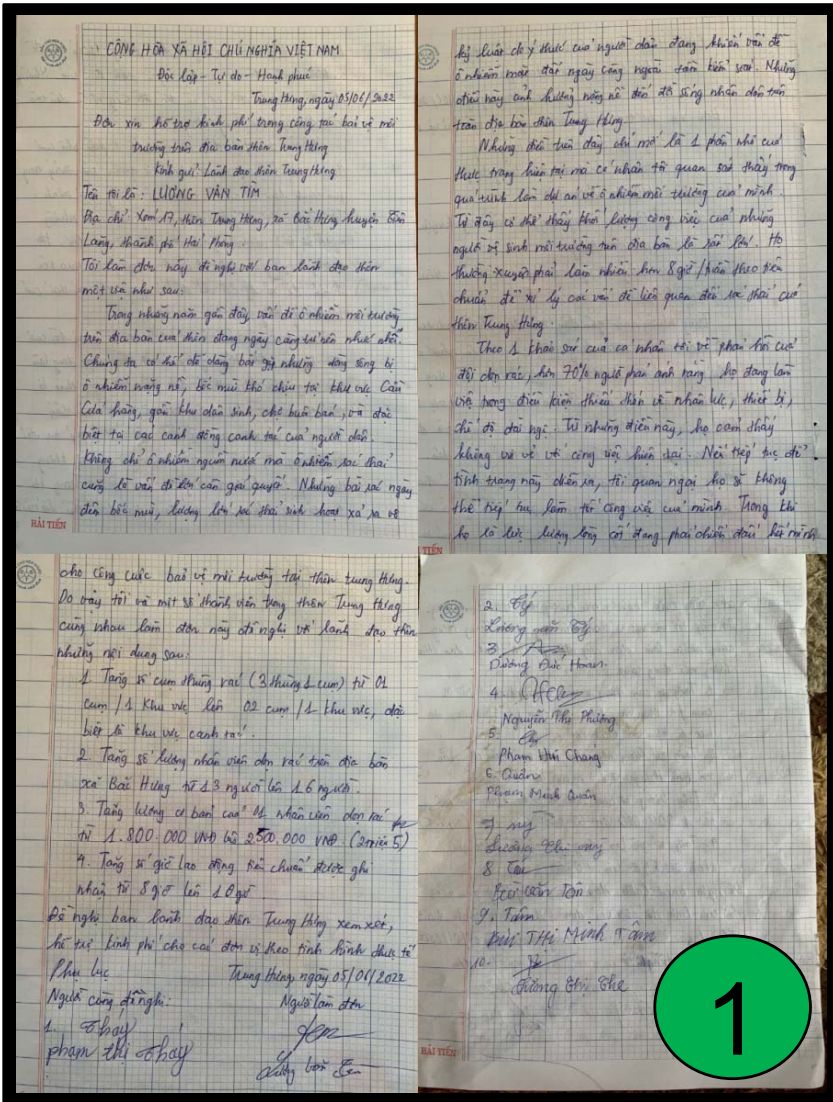 CỘNG HÒA XÃ HỘI CHỦ NGHĨA VIỆT NAM
Độc lập - Tự do - Hạnh phúc
Trung Hưng, ngày 05/06/2022
Đơn xin hỗ trợ kinh phí trong công tác bảo vệ môi
trường trên địa bàn thôn Trung Hưng
Kính gửi Lãnh đạo thôn Trung Hưng
Tên tôi là: LƯƠNG VĂN TIM
Địa chỉ: Xóm 17, thôn Trung Hưng, xã Bắc Hưng huyện Tiên
Lãng, thành phố Hải Phòng.
Tôi làm đơn này đề nghị với ban lãnh đạo thôn
một vài như sau:
Trong những năm gần đây, vấn đề ô nhiễm môi trường
trên địa bàn của thôn đang ngày càng trở nên nhức nhối.
Chúng ta có thể dễ dàng bắt gặp những dòng sông bị
ô nhiễm nặng nề, bốc mùi khó chịu tại khu vực Cần
Cửa hàng, gần khu dân sinh, chợ buôn bán, và đặc
biệt tại các cánh đồng canh tác của người dân.
Không chỉ ô nhiễm nguồn nước mà ô nhiễm rác thải
cũng là vấn đề lớn cần giải quyết. Những bãi rác ngày
đêm bốc mùi, lượng lớn rác thải sinh hoạt xả ra vô
HẢI TIẾN
kỷ luật do ý thức của người dân đang khiến vấn đề
ô nhiễm môi đất ngày càng ngoài tầm kiểm soát. Những
điều này ảnh hưởng nặng nề đến đời sống nhân dân trên
toàn địa bàn thôn Trung Hưng.
Những điều trên đây chỉ mới là 1 phần nhỏ của
thực trạng hiện tại mà cá nhân tôi quan sát thấy trong
quá trình làm dự án về ô nhiễm môi trường của mình.
Từ đây có thể thấy khối lượng công việc của những
người vệ sinh môi trường trên địa bàn là rất lớn. Họ
thường xuyên phải làm nhiều hơn 8 giờ / theo tiêu
chuẩn để xử lý các vấn đề liên quan đến rác thải của
thôn Trung Hưng.
Theo 1 khảo sát của cá nhân tôi về phản hồi của
đội dọn rác, hơn 70% người phản ánh rằng họ đang làm
việc trong điều kiện thiếu thốn về nhân lực, thiết bị,
chế độ đãi ngộ. Từ những điều này, họ cảm thấy
không vui vẻ với công việc hiện tại. Nếu tiếp tục để
tình trạng này diễn ra, tôi quan ngại họ sẽ không
thể tiếp tục làm tốt công việc của mình. Trong khi
họ là lực lượng lòng cốt đang phải chiến đấu hết mình
TIẾN
cho công cuộc bảo vệ môi trường tại thôn trung Hưng.
Do vậy tôi và một số thành viên trong thôn Trung Hưng
cùng nhau làm đơn này đề nghị với lãnh đạo thôn
những nội dung sau:
1. Tăng số cụm thùng rác (3 thùng 1 cụm) từ 01
cụm / 1 khu vực lên 02 cụm / 1 khu vực, đặc
biệt là khu vực canh tác.
2. Tăng số lượng nhân viên dọn rác trên địa bàn
xã Bắc Hưng từ 13 người lên 16 người.
3. Tăng lương cơ bản của 01 nhân viên dọn rác
từ 1.800.000 VNĐ lên 2500.000 VNĐ. (2 triệu 5)
4. Tăng số giờ lao động tiêu chuẩn được ghi
nhận từ 8 giờ lên 10 giờ
Đề nghị ban lãnh đạo thôn Trung Hưng xem xét,
hỗ trợ kinh phí cho các đơn vị theo tình hình thực tế
Phụ lục
Trung Hưng, ngày 05/06/2022
Người cùng đề nghị:
Người làm đơn
1. Thảy
phạm thị Thảy
Lương văn
2. Tý
Lương văn Tý
3.
Dương Đức Hoan
4.
Nguyễn Thị Phương
5.
Phạm Chang
6. Quân
Phạm Minh Quân
7 mỹ
Lương Thị mỹ
8
Bùi văn
9. Tâm
BÙI THỊ MINH TÂM
10.
Lương Thị The
HẢI TIẾN
1